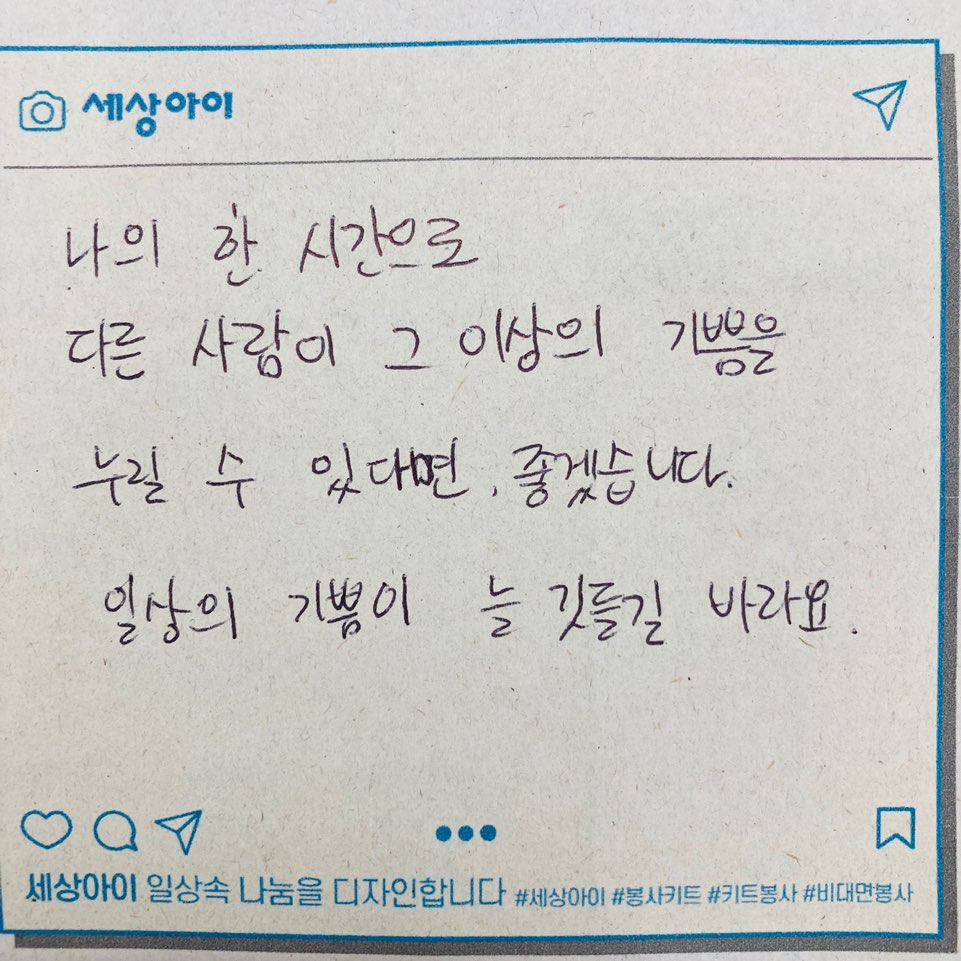 세상아이
나의 한 시간으로
다른 사람이 그 이상의 기쁨을
누릴 수 있다면, 좋겠습니다.
일상의 기쁨이 늘 깃들길 바라요.
세상아이 일상속 나눔을 디자인합니다 #세상아이 #봉사키트 #키트봉사 #비대면봉사